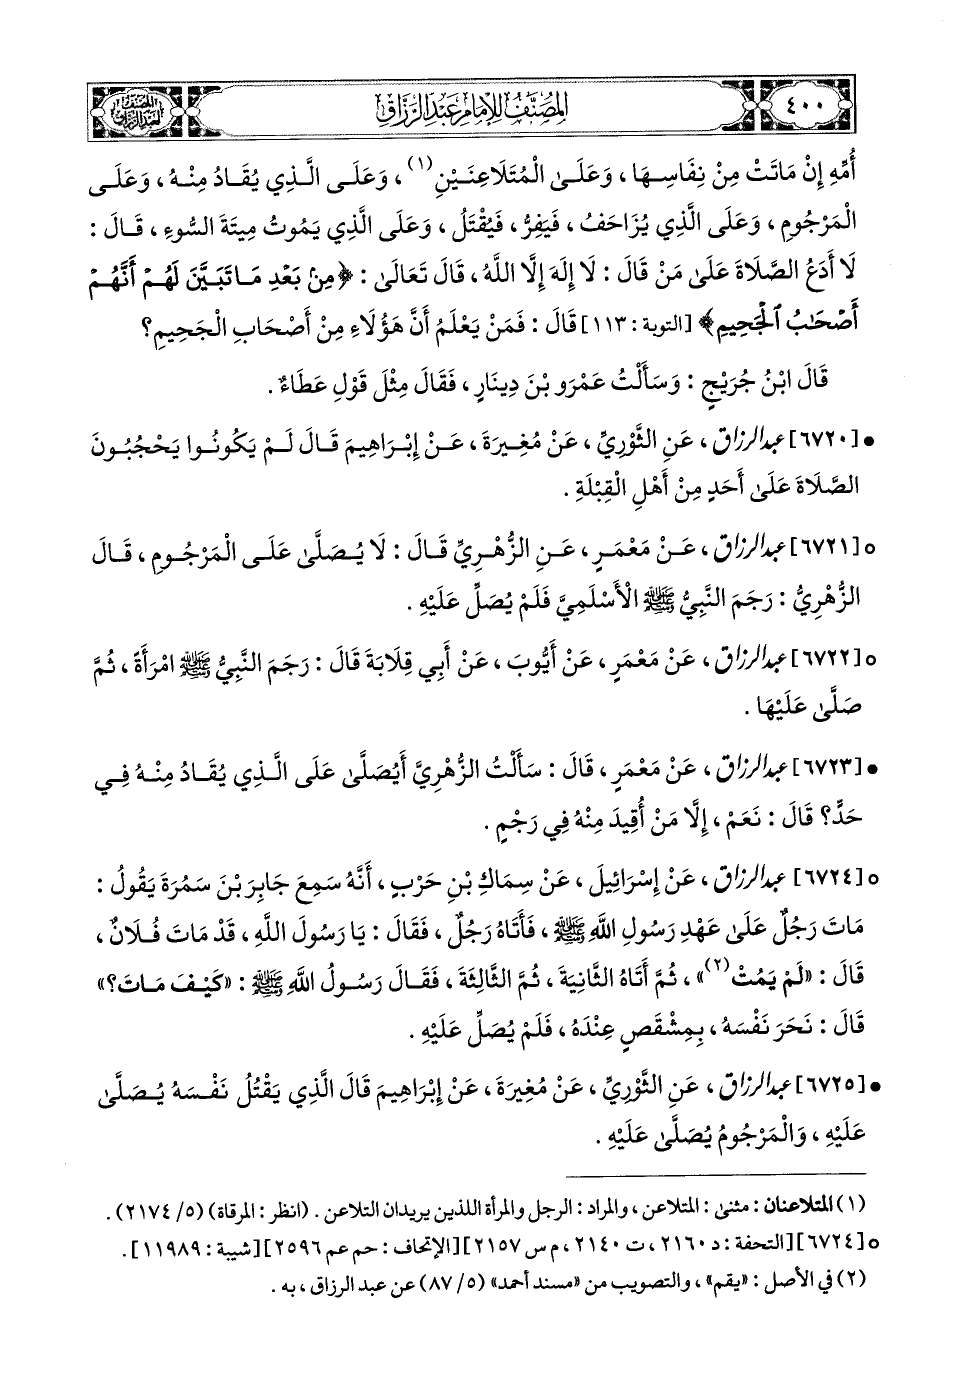 ٤٠٠
المصنف للإمام عبد الرزاق
أُمِّهِ إِنْ مَاتَتْ مِنْ نِفَاسِهَا، وَعَلَى الْمُتَلَاعِنَيْنِ(١)، وَعَلَى الَّذِي يُقَادُ مِنْهُ، وَعَلَى
الْمَرْجُومِ، وَعَلَى الَّذِي يُزَاحَفُ، فَيَفِرُّ، فَيُقْتَلُ، وَعَلَى الَّذِي يَمُوتُ مِيتَةَ السُّوءِ، قَالَ:
لَا أَدَعُ الصَّلَاةَ عَلَى مَنْ قَالَ: لَا إِلَهَ إِلَّا اللَّهُ، قَالَ تَعَالَى: ﴿مِنْ بَعْدِ مَا تَبَيَّنَ لَهُمْ أَنَّهُمْ
أَصْحَٰبُ ٱلْجَحِيمِ﴾ [التوبة: ١١٣] قَالَ: فَمَنْ يَعْلَمُ أَنَّ هَؤُلَاءِ مِنْ أَصْحَابِ الْجَحِيمِ؟
قَالَ ابْنُ جُرَيْجٍ: وَسَأَلْتُ عَمْرَو بْنَ دِينَارٍ، فَقَالَ مِثْلَ قَوْلِ عَطَاءٍ.
• [٦٧٢٠] عبد الرزاق، عَنِ الثَّوْرِيِّ، عَنْ مُغِيرَةَ، عَنْ إِبْرَاهِيمَ قَالَ لَمْ يَكُونُوا يَحْجُبُونَ
الصَّلَاةَ عَلَى أَحَدٍ مِنْ أَهْلِ الْقِبْلَةِ.
o [٦٧٢١] عبد الرزاق، عَنْ مَعْمَرٍ، عَنِ الزُّهْرِيِّ قَالَ: لَا يُصَلَّى عَلَى الْمَرْجُومِ، قَالَ
الزُّهْرِيُّ: رَجَمَ النَّبِيُّ ﷺ الْأَسْلَمِيَّ فَلَمْ يُصَلِّ عَلَيْهِ.
o [٦٧٢٢] عبد الرزاق، عَنْ مَعْمَرٍ، عَنْ أَيُّوبَ، عَنْ أَبِي قِلَابَةَ قَالَ: رَجَمَ النَّبِيُّ ﷺ امْرَأَةً، ثُمَّ
صَلَّى عَلَيْهَا.
• [٦٧٢٣] عبد الرزاق، عَنْ مَعْمَرٍ، قَالَ: سَأَلْتُ الزُّهْرِيَّ أَيُصَلَّى عَلَى الَّذِي يُقَادُ مِنْهُ فِي
حَدٍّ؟ قَالَ: نَعَمْ، إِلَّا مَنْ أُقِيدَ مِنْهُ فِي رَجْمٍ.
o [٦٧٢٤] عبد الرزاق، عَنْ إِسْرَائِيلَ، عَنْ سِمَاكِ بْنِ حَرْبٍ، أَنَّهُ سَمِعَ جَابِرَ بْنَ سَمُرَةَ يَقُولُ:
مَاتَ رَجُلٌ عَلَى عَهْدِ رَسُولِ اللَّهِ ﷺ، فَأَتَاهُ رَجُلٌ، فَقَالَ: يَا رَسُولَ اللَّهِ، قَدْ مَاتَ فُلَانٌ،
قَالَ: «لَمْ يَمُتْ(٢)»، ثُمَّ أَتَاهُ الثَّانِيَةَ، ثُمَّ الثَّالِثَةَ، فَقَالَ رَسُولُ اللَّهِ ﷺ: «كَيْفَ مَاتَ؟»
قَالَ: نَحَرَ نَفْسَهُ، بِمِشْقَصٍ عِنْدَهُ، فَلَمْ يُصَلِّ عَلَيْهِ.
• [٦٧٢٥] عبد الرزاق، عَنِ الثَّوْرِيِّ، عَنْ مُغِيرَةَ، عَنْ إِبْرَاهِيمَ قَالَ الَّذِي يَقْتُلُ نَفْسَهُ يُصَلَّى
عَلَيْهِ، وَالْمَرْجُومُ يُصَلَّى عَلَيْهِ.
(١) المتلاعنان: مثنى: المتلاعن، والمراد: الرجل والمرأة اللذين يريدان التلاعن. (انظر: المرقاة) (٥/ ٢١٧٤).
o [٦٧٢٤] [التحفة: د ٢١٦٠، ت ٢١٤٠، م س ٢١٥٧] [الإتحاف: حم عم ٢٥٩٦] [شيبة: ١١٩٨٩].
(٢) في الأصل: «يقم»، والتصويب من «مسند أحمد» (٥/ ٨٧) عن عبد الرزاق، به.